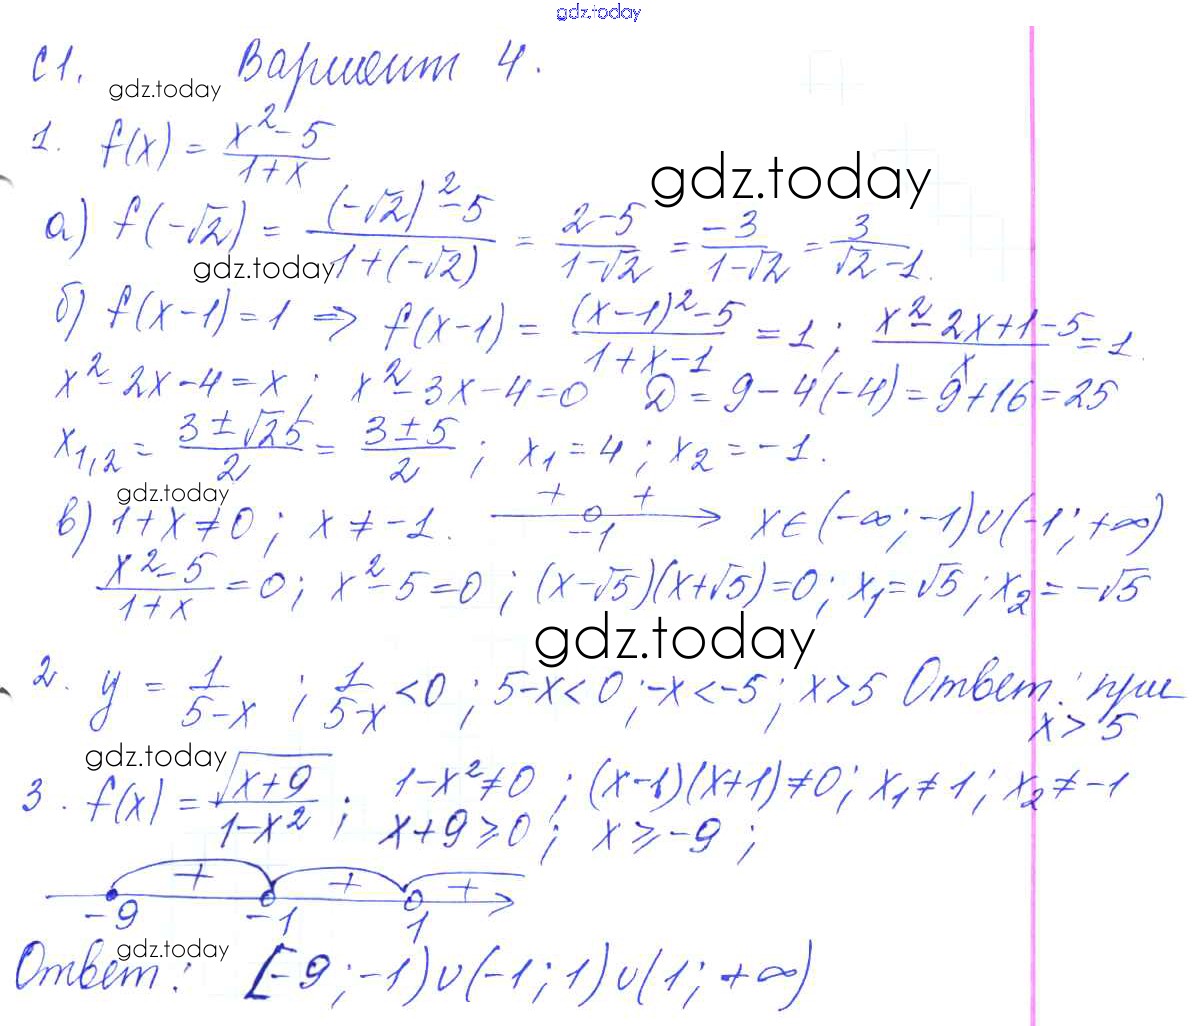 gdz.today
С1. Вариант 4.
gdz.today
1. f(x) = (x² - 5)/(1 + x)
gdz.today
а) f(-√2) = ((-√2)² - 5)/(1 + (-√2)) = (2 - 5)/(1 - √2) = (-3)/(1 - √2) = 3/(√2 - 1).
gdz.today
б) f(x-1) = 1 ⇒ f(x-1) = ((x-1)² - 5)/(1 + x - 1) = 1; (x² - 2x + 1 - 5)/x = 1.
x² - 2x - 4 = x; x² - 3x - 4 = 0 D = 9 - 4(-4) = 9 + 16 = 25
x₁,₂ = (3 ± √25)/2 = (3 ± 5)/2; x₁ = 4; x₂ = -1.
gdz.today
в) 1 + x ≠ 0; x ≠ -1. + + -1 x ∈ (-∞; -1) ∪ (-1; +∞)
(x² - 5)/(1 + x) = 0; x² - 5 = 0; (x - √5)(x + √5) = 0; x₁ = √5; x₂ = -√5
gdz.today
2. y = 1/(5 - x); 1/(5 - x) < 0; 5 - x < 0; -x < -5; x > 5 Ответ: при
x > 5
gdz.today
3. f(x) = √(x + 9)/(1 - x²); 1 - x² ≠ 0; (x - 1)(x + 1) ≠ 0; x₁ ≠ 1; x₂ ≠ -1
x + 9 ≥ 0; x ≥ -9;
+ + +
-9 -1 1
gdz.today
Ответ: [-9; -1) ∪ (-1; 1) ∪ (1; +∞)